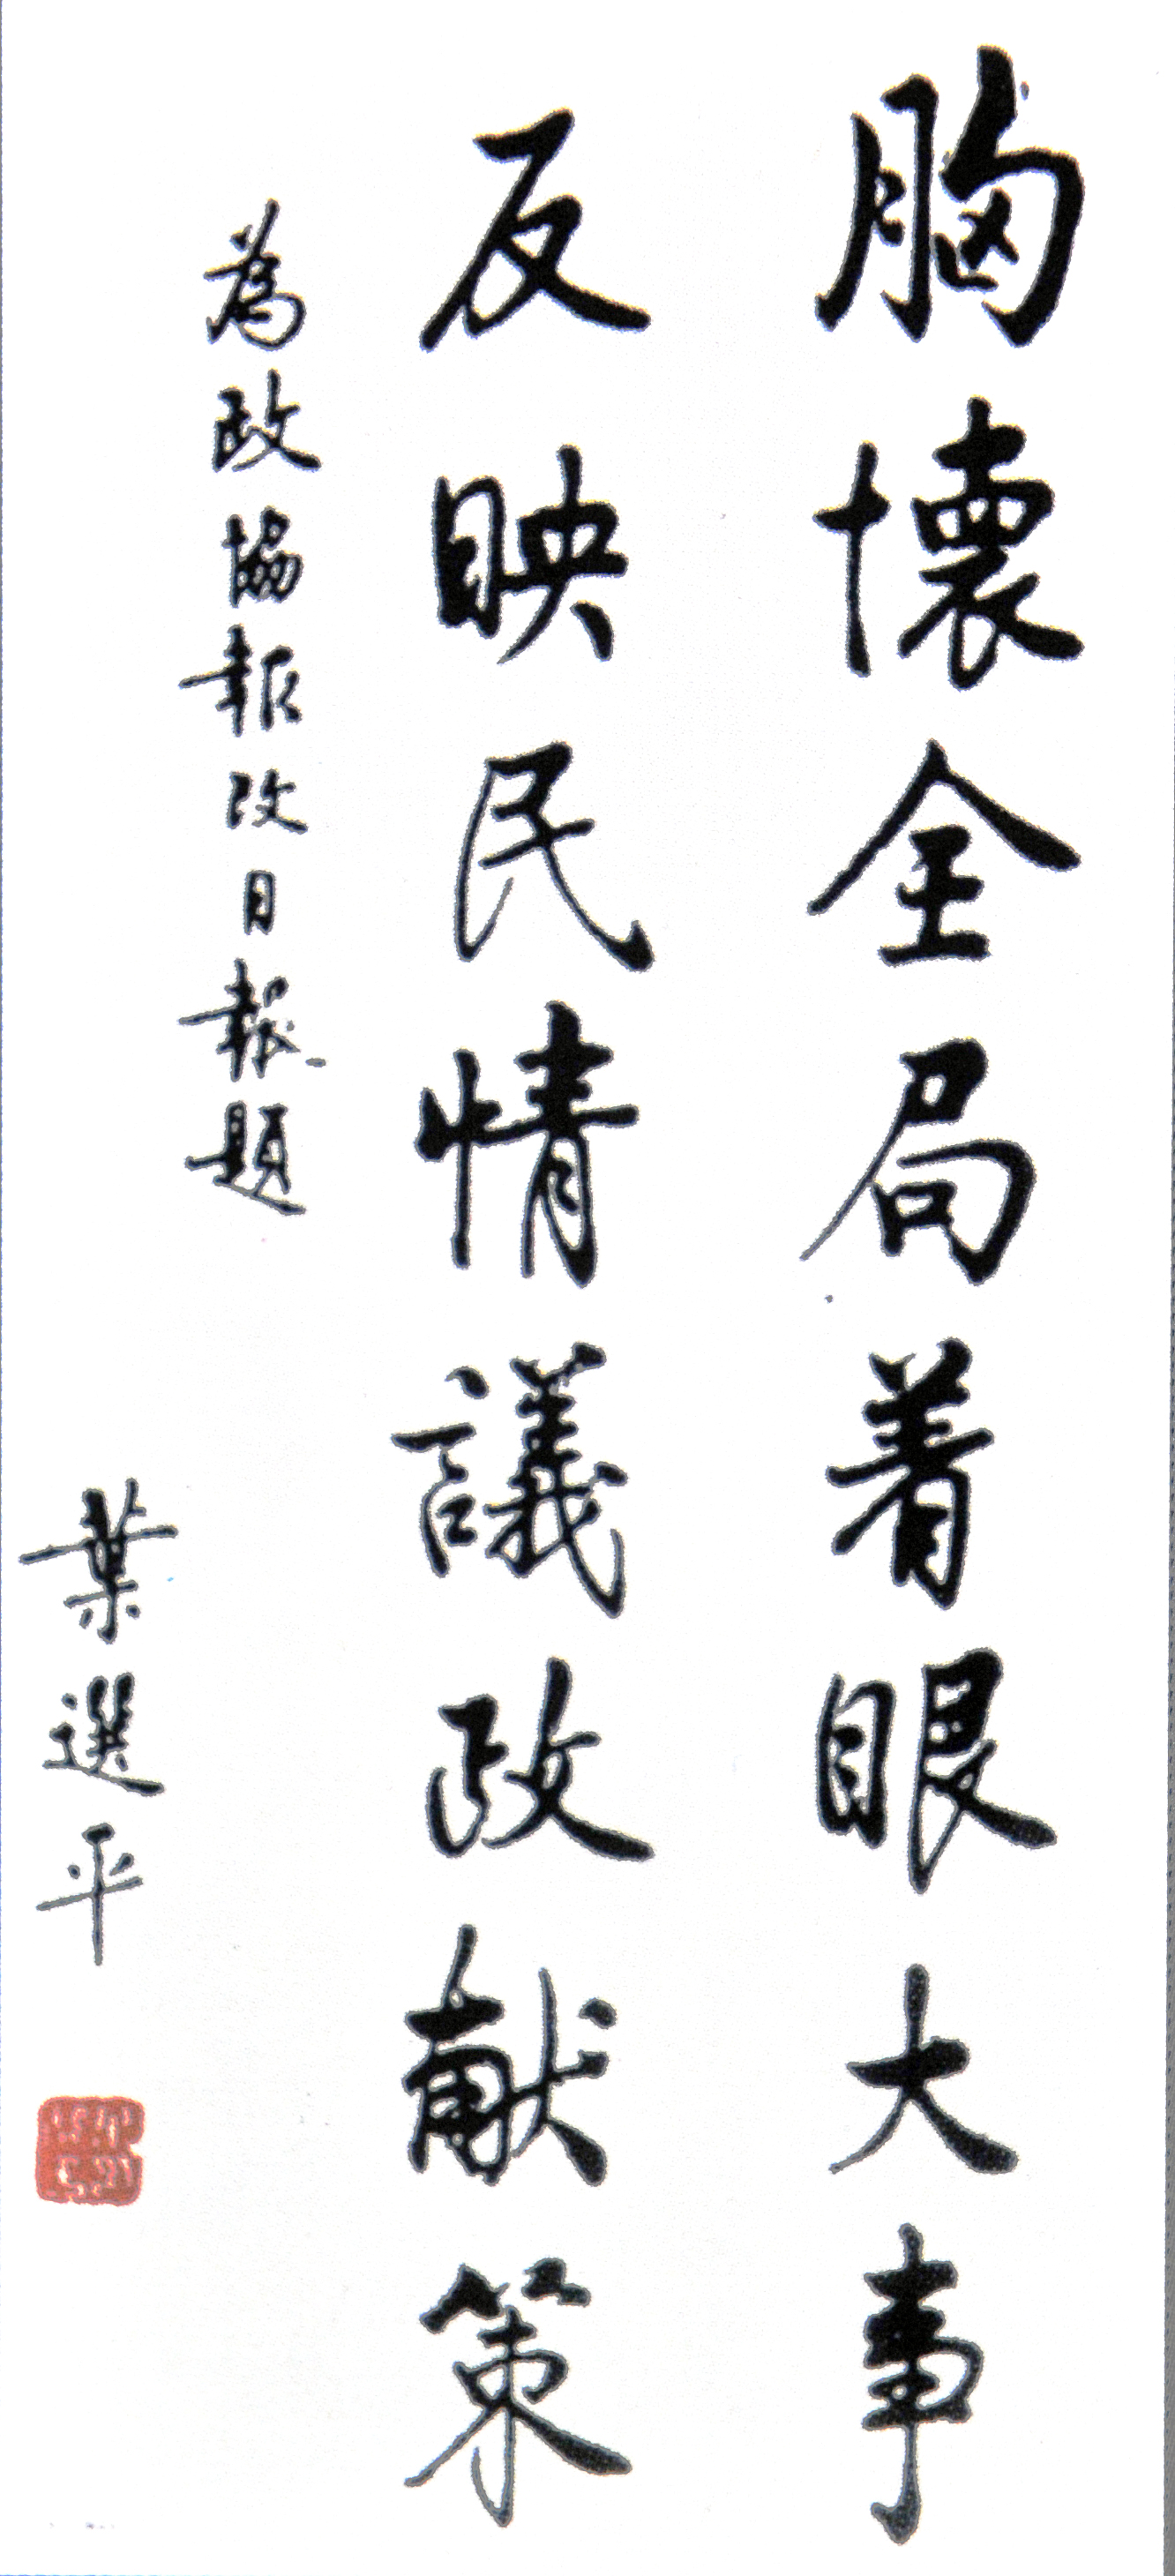 胸懷全局着眼大事
反映民情議政献策
為政協報改日報題
葉選平